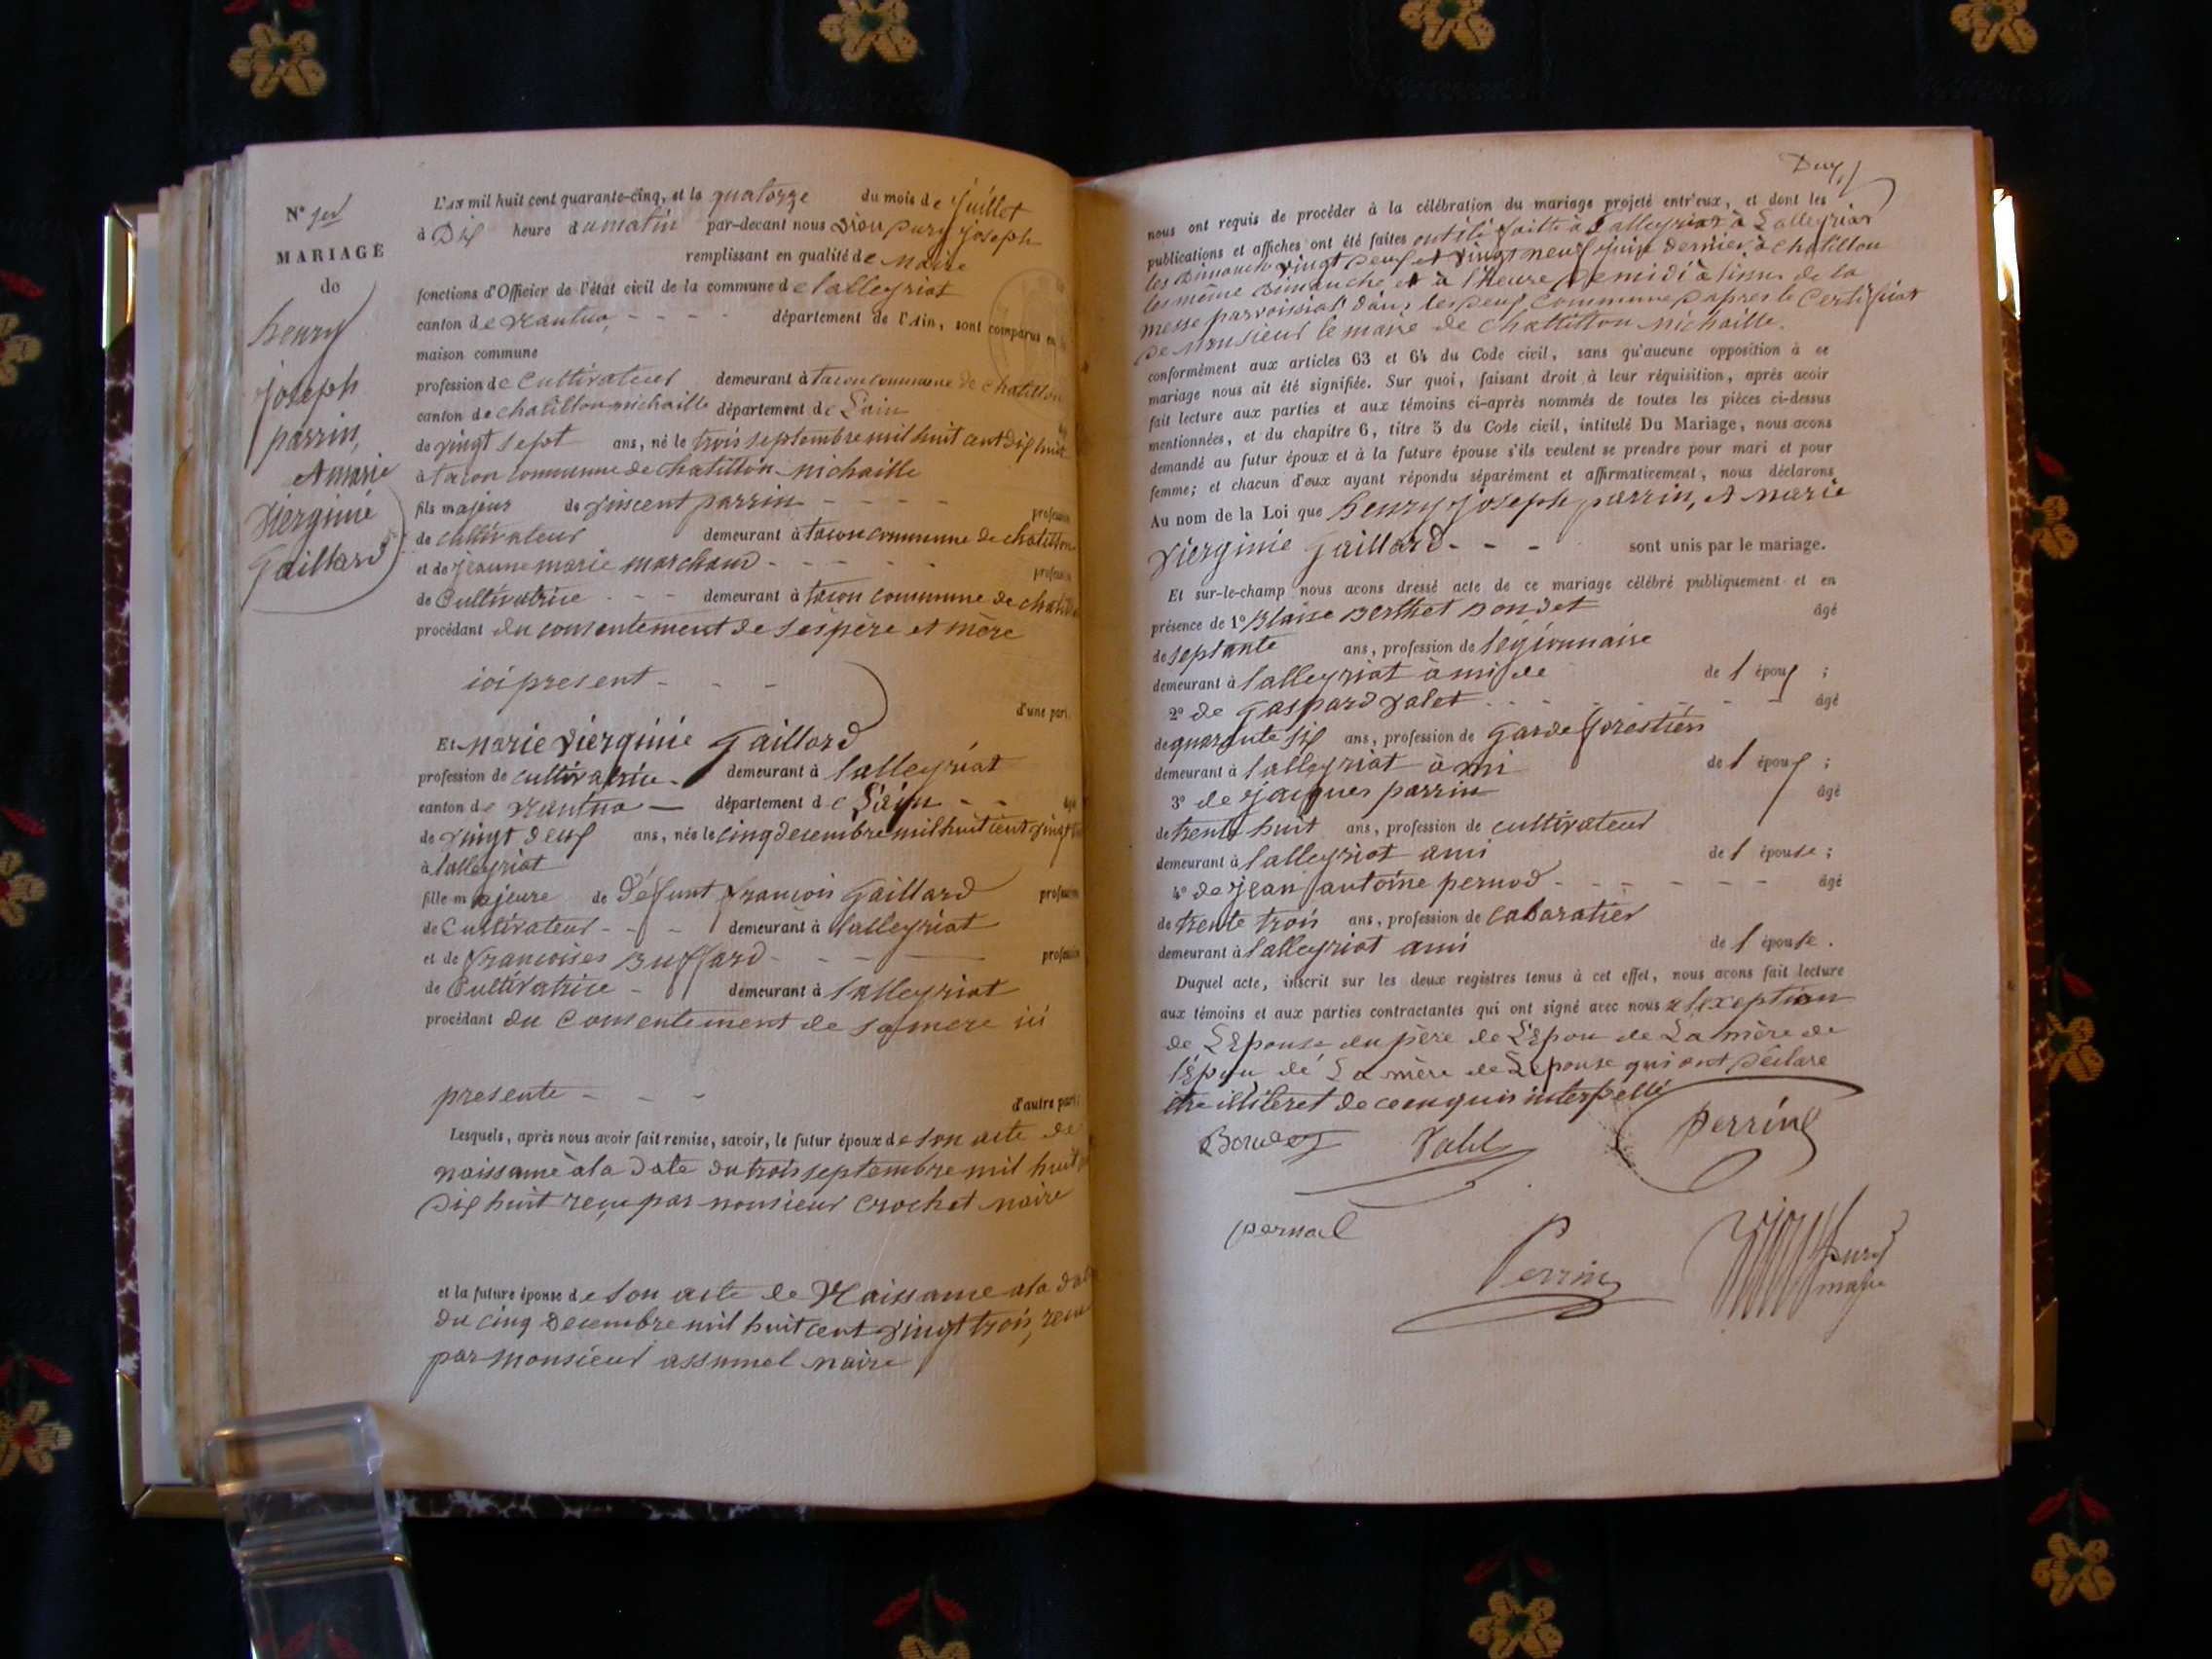 N° 1er
MARIAGE
de
henry
joseph
parrin,
et marie
vierginie
Gaillard
L'AN mil huit cent quarante-cinq, et le quatorze du mois de juillet
à Dix heure du matin par-devant nous joseph
remplissant en qualité de maire
fonctions d'Officier de l'état civil de la commune de lalleyriat
canton de nantua département de l'Ain, sont comparus en la
maison commune
profession de cultivateur demeurant à tacon commune de chatillon
canton de chatillon michaille département de L'ain
de vingt sept ans, né le trois septembre mil huit cent dix huit
à tacon commune de chatillon michaille
fils majeur de vincent parrin profession
de cultivateur demeurant à tacon commune de chatillon
et de jeanne marie marchand profession
de Cultivatrice demeurant à tacon commune de chatillon
procédant du consentement de ses père et mère
ici present
d'une part.
Et marie vierginie Gaillard
profession de cultivatrice demeurant à lalleyriat
canton de nantua département de L'ain âgée
de vingt deux ans, née le cinq decembre mil huit cent vingt trois
à lalleyriat
fille majeure de défunt françois Gaillard profession
de Cultivateur demeurant à lalleyriat
et de françoises Buffard profession
de Cultivatrice demeurant à lalleyriat
procédant du consentement de sa mere ici
presente
d'autre part;
Lesquels, après nous avoir fait remise, savoir, le futur époux de son acte de
naissance a la date du trois septembre mil huit
dix huit reçu par monsieur crochet maire
et la future épouse de son acte de Naissance a la date
du cinq decembre mil huit cent vingt trois, recu
par monsieur assumel maire
nous ont requis de procéder à la célébration du mariage projeté entr'eux, et dont les
publications et affiches ont été faites ont été faitte à Lalleyriat à Lalleyriat
les Dimanche vingt deux et vingt neuf juin dernier à chatillon
les même dimanche et à l'heure de midi à l'issue de la
messe parroissial dans les deux commune d'apres le Certificat
de monsieur le maire de chattillon michaille.
conformément aux articles 63 et 64 du Code civil, sans qu'aucune opposition à ce
mariage nous ait été signifiée. Sur quoi, faisant droit à leur réquisition, après avoir
fait lecture aux parties et aux témoins ci-après nommés de toutes les pièces ci-dessus
mentionnées, et du chapitre 6, titre 5 du Code civil, intitulé Du Mariage, nous avons
demandé au futur époux et à la future épouse s'ils veulent se prendre pour mari et pour
femme; et chacun d'eux ayant répondu séparément et affirmativement, nous déclarons
Au nom de la Loi que henry joseph parrin, et marie
vierginie Gaillard sont unis par le mariage.
Et sur-le-champ nous avons dressé acte de ce mariage célébré publiquement et en
présence de 1° Blaise Berthet Bondet âgé
de septante ans, profession de legionnaire
demeurant à lalleyriat ami de de l époux ;
2° de gaspard valet âgé
de quarante six ans, profession de garde forestiers
demeurant à lalleyriat ami de l époux ;
3° de jacques parrin âgé
de trente huit ans, profession de cultivateur
demeurant à lalleyriat ami de l épouse ;
4° de jean antoine pernod âgé
de trente trois ans, profession de cabaratier
demeurant à lalleyriat ami de l épouse.
Duquel acte, inscrit sur les deux registres tenus à cet effet, nous avons fait lecture
aux témoins et aux parties contractantes qui ont signé avec nous a lexception
de L'Epouse du père de L'Epou de La mère de
l'Epou de La mère de Lepouse qui ont déclare
être illiteret de ce enquis interpellé
Perrin
pernod
Perrin
maire